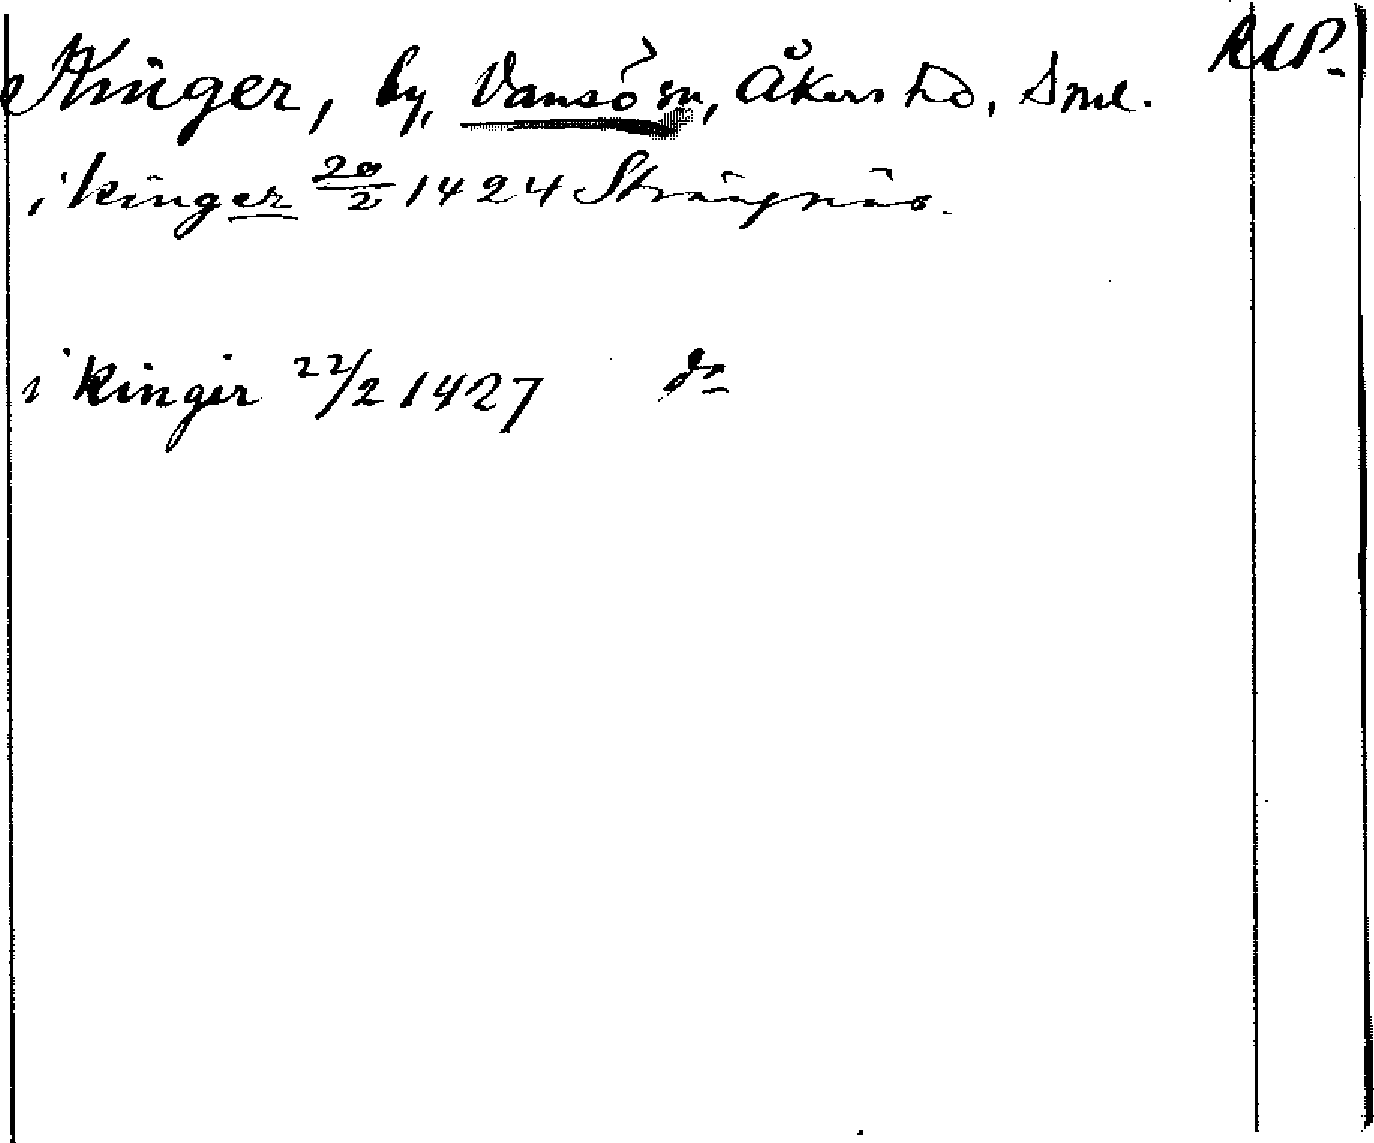 Kinger, by, Vansö sn, Åkers hd, Sml. RAP.
i kinger 20/2 1424 Strängnäs.
i kingir 22/2 1427 do